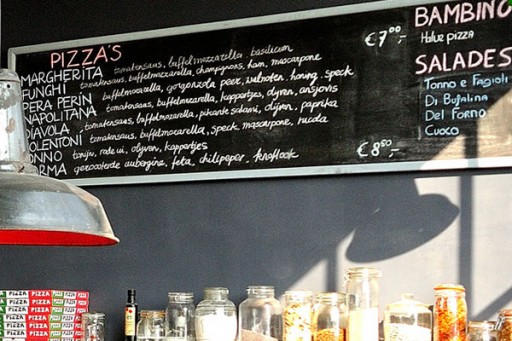 PIZZA'S
MARGHERITA tomatensaus, buffelmozzarella, basilicum €7⁰⁰,-
FUNGHI tomatensaus, buffelmozzarella, champignons, ham, mascarpone
PERA PERIN buffelmozzarella, gorgonzola, peer, walnoten, honing, speck
NAPOLITANA tomatensaus, buffelmozzarella, kappertjes, olijven, ansjovis
DIAVOLA tomatensaus, buffelmozzarella, pikante salami, olijven, paprika
OLENTONI tomatensaus, buffelmozzarella, speck, mascarpone, rucola
ONNO tonijn, rode ui, olijven, kappertjes €8⁵⁰,-
RMA geroosterde aubergine, feta, chilipeper, knoflook
BAMBINO
Halve pizza
SALADES
Tonno e Fagioli
Di Bufalina
Del Forno
Cuoco
PIZZA PIZZA PIZZA
PIZZA PIZZA PIZZA
PIZZA PIZZA PIZZA